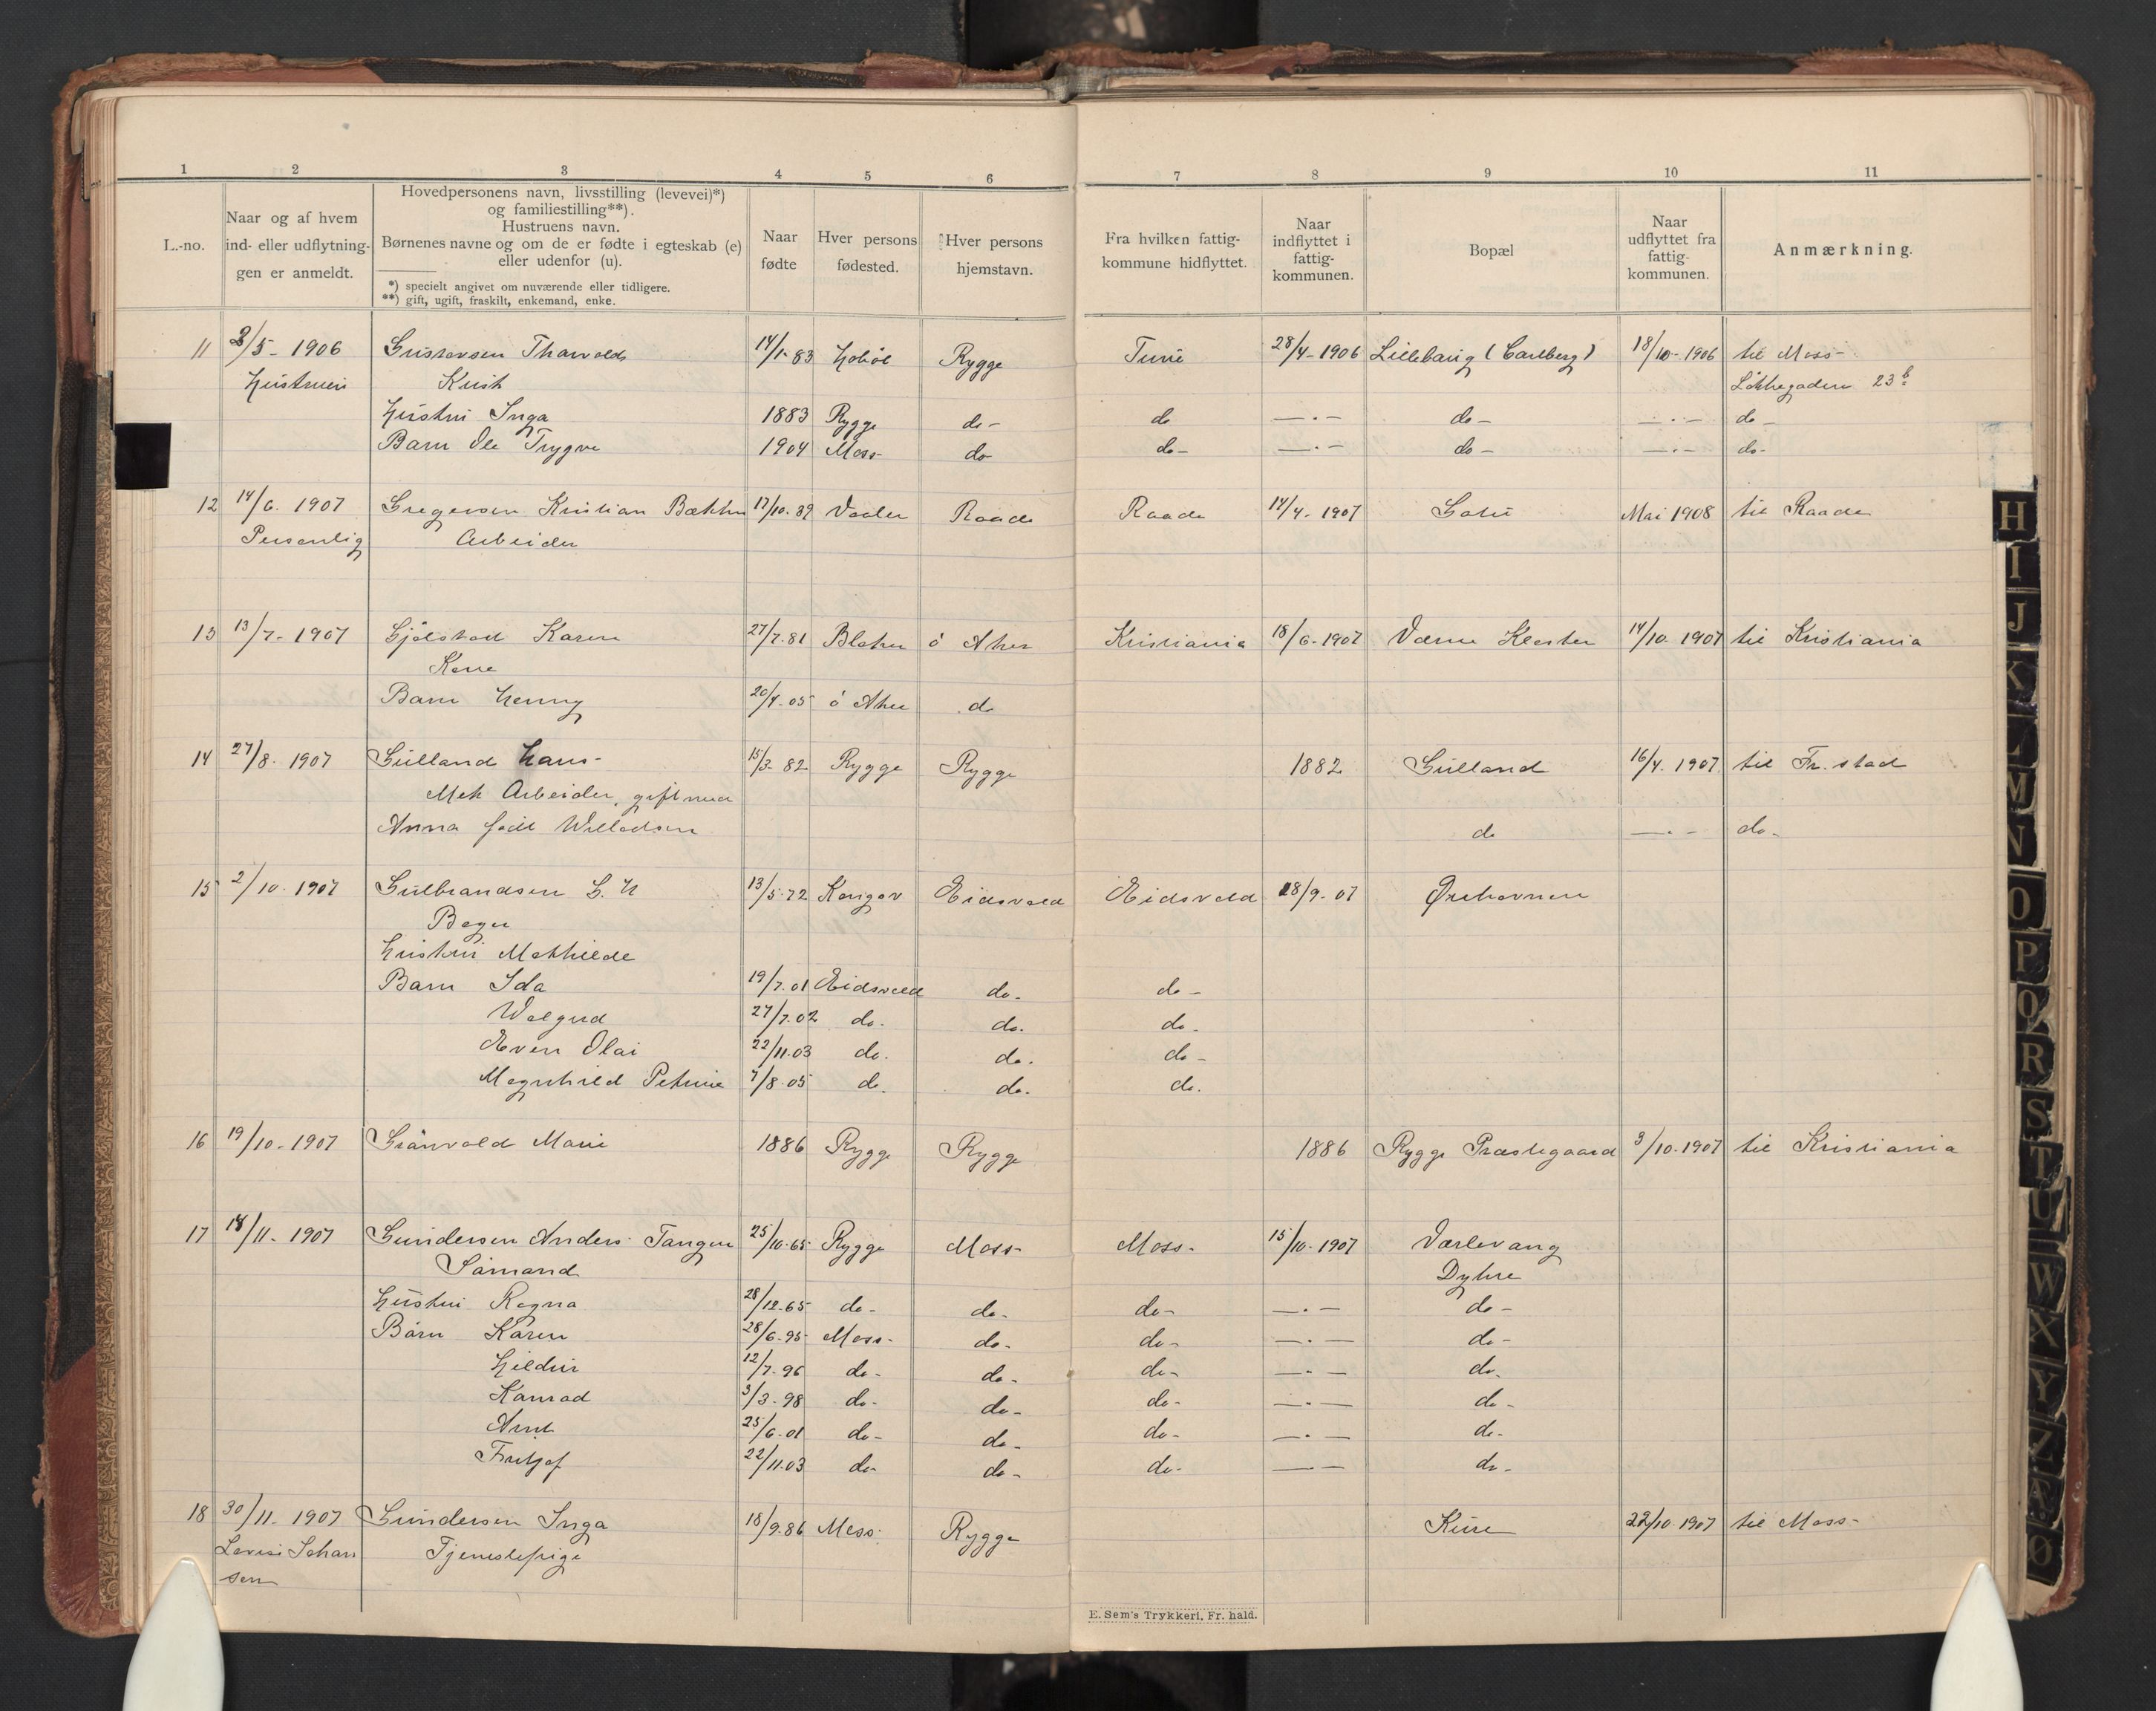 1 2 3 4 5 6 7 8 9 10 11
L.-no.
Naar og af hvem
ind- eller udflytnin-
gen er anmeldt.
Hovedpersonens navn, livsstilling (levevei)*)
og familiestilling**).
Hustruens navn.
Børnenes navne og om de er fødte i egteskab (e)
eller udenfor (u).
*) specielt angivet om nuværende eller tidligere.
**) gift, ugift, fraskilt, enkemand, enke.
Naar
fødte
Hver persons
fødested.
Hver persons
hjemstavn.
Fra hvilken fattig-
kommune hidflyttet.
Naar
indflyttet i
fattig-
kommunen.
Bopæl
Naar
udflyttet fra
fattig-
kommunen.
Anmærkning.
11 3/5 - 1906 Gustavsen Tharvald 14/1-83 Hobøl Rygge Tune 28/4-1906 Lillebaug (Carlberg) 18/10-1906 til Moss-
Hustruen Krist Løkkegaden 23 b
Hustru Inga 1883 Rygge do- do —·— do- —·— do-
Barn Ole Trygve 1904 Moss do do- —·— do- —·— do-
12 14/6. 1907 Gregersen Kristian Bakken 17/10-89 Vaaler Raade Raade 14/4-1907 Mai 1908 til Raade
Personlig Arbeider
13 13/7-1907 Gjølstad Karen 27/7.81 Blaker ø Aker Kristiania 18/6-1907 Værne Kloster 14/10-1907 til Kristiania
Kone
Barn Henny 20/4-05 ø Aker do
14 27/8. 1907 Gulland Hans- 15/3-82 Rygge Rygge 1882 Gulland 16/4. 1907 til Fr. stad
Mek Arbeider, gift med
Anna født Willadsen do —·— do-
15 2/10. 1907 Gulbrandsen G. H 13/5-72 Kongsv Eidsvold Eidsvold 28/9-07 Ørehavnen
Bager
Hustru Mathilde
Barn Ida 19/7.01 Eidsvold do- do-
Walgerd 27/7.02 do. do. do-
Even Olai 22/11.03 do. do. do-
Magnhild Petrine 7/8-05 do. do. do.
16 19/10-1907 Grønvold Marie 1886 Rygge Rygge 1886 Rygge Præstegaard 3/10.1907 til Kristiania
17 18/11-1907 Gundersen Anders Tangen 25/10-65 Rygge Moss- Moss- 15/10-1907 Varlevang
Sømand Dyhre
Hustru Ragna 28/12-65 do- do- do- —·— do-
Børn Karen 28/6-95 Moss- do- do- —·— do-
Hildur 12/7-96 do- do- do- —·— do-
Konrad 3/3-98 do- do- do- —·— do-
Arnt 25/6-01 do- do- do- —·— do-
Fritjof 22/11.03 do- do- do- —·— do-
18 30/11-1907 Gundersen Inga 18/9.86 Moss- Rygge Kure 22/10 1907 til Moss-
Lovise Johan Tjenestepige
sen
E. Sem's Trykkeri, Fr. hald.
H
I
J
K
L
M
N
O
P
Q
R
S
T
U
W
X
Y
Z
Æ
Ø